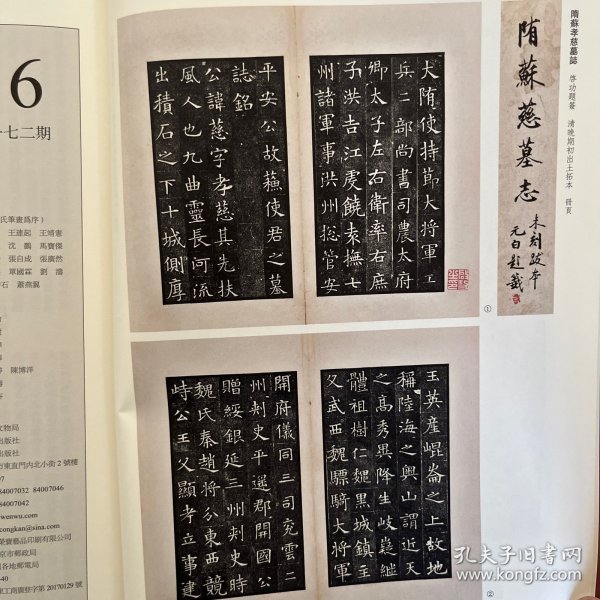 隋蘇孝慈墓誌
啓功題簽 清晚期初出土拓本 冊頁
隋蘇慈墓志
未刻跋本
元白題籤
大隋使持節大將軍工
兵二部尚書司農太府
卿太子左右衛率右庶
子洪吉江虔饒袁撫七
州諸軍事洪州總管安
平安公故蘇使君之墓
誌銘
公諱慈字孝慈其先扶
風人也九曲靈長河流
出積石之下十城側厚
①
玉英產崐崙之上故地
稱陸海之輿山謂近天
之高秀異降生岐嶷繼
體祖樹仁魏黑城鎮主
父武西魏驃騎大將軍
開府儀同三司兖雲二
州刺史平遥郡開國公
贈綏銀延三州刺史時
魏氏秦趙將分東西競
峙公王父顯考立事建
②
6
七二期
氏筆畫爲序）
王連起 王靖憲
沈鵬 馬寶傑
張自成 張廣然
單國霖 劉濤
石 蕭燕翼
陳博洋
文物局
出版社
出版社
市東直門内北小街2號樓
97
84007032 84007046
84007042
wenwu.com
congkan@sina.com
榮寶藝品印刷有限公司
京市郵政局
國各地郵電局
-40
東工商廣登字第20170129號
孔夫子旧书网
www.kongfz.com